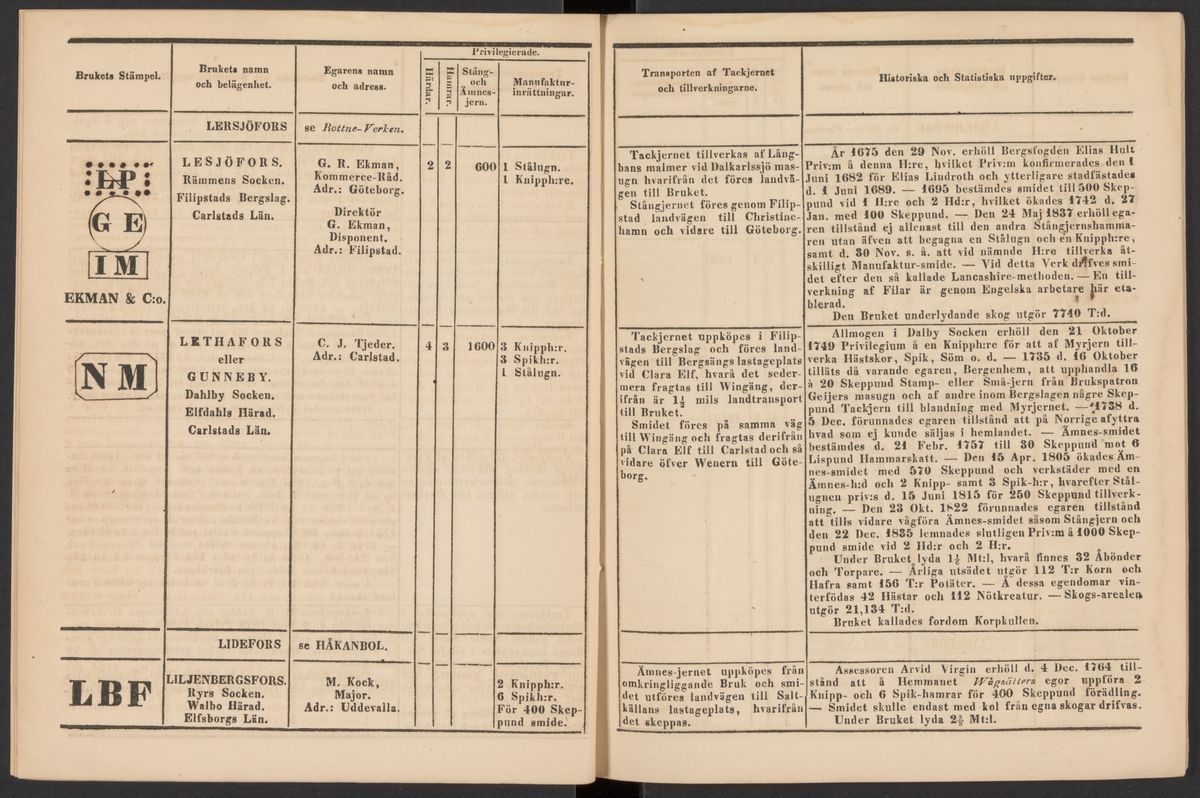 Brukets Stämpel.
Brukets namn
och belägenhet.
Egarens namn
och adress.
Privilegierade.
Härdar.
Hamrar.
Stång-
och
Ämnes-
jern.
Manufaktur-
inrättningar.
LERSJÖFORS
se Rottne-Verken.
LP
G E
IM
EKMAN & C:o.
LESJÖFORS.
Rämmens Socken.
Filipstads Bergslag.
Carlstads Län.
G. R. Ekman,
Kommerce-Råd.
Adr.: Göteborg.
Direktör
G. Ekman,
Disponent.
Adr.: Filipstad.
2
2
600
1 Stålugn.
1 Knipph:re.
NM
LETHAFORS
eller
GUNNEBY.
Dahlby Socken.
Elfdahls Härad.
Carlstads Län.
C. J. Tjeder.
Adr.: Carlstad.
4
3
1600
3 Knipph:r.
3 Spikh:r.
1 Stålugn.
LIDEFORS
se HÅKANBOL.
LBF
LILJENBERGSFORS.
Ryrs Socken.
Walbo Härad.
Elfsborgs Län.
M. Kock,
Major.
Adr.: Uddevalla.
2 Knipph:r.
6 Spikh:r.
För 400 Skep-
pund smide.
Transporten af Tackjernet
och tillverkningarne.
Historiska och Statistiska uppgifter.
Tackjernet tillverkas af Lång-
bans malmer vid Dalkarlssjö mas-
ugn hvarifrån det föres landvä-
gen till Bruket.
Stångjernet föres genom Filip-
stad landvägen till Christine-
hamn och vidare till Göteborg.
År 1675 den 29 Nov. erhöll Bergsfogden Elias Hult
Priv:m å denna H:re, hvilket Priv:m konfirmerades den 1
Juni 1682 för Elias Lindroth och ytterligare stadfästades
d. 1 Juni 1689. — 1695 bestämdes smidet till 500 Skep-
pund vid 1 H:re och 2 Hd:r, hvilket ökades 1742 d. 27
Jan. med 100 Skeppund. — Den 24 Maj 1837 erhöll ega-
ren tillstånd ej allenast till den andra Stångjernshamma-
ren utan äfven att begagna en Stålugn och en Knipph:re,
samt d. 30 Nov. s. å. att vid nämnde H:re tillverka åt-
skilligt Manufaktur-smide. — Vid detta Verk drifves smi-
det efter den så kallade Lancashire-methoden. — En till-
verkning af Filar är genom Engelska arbetare här eta-
blerad.
Den Bruket underlydande skog utgör 7740 T:d.
Tackjernet uppköpes i Filip-
stads Bergslag och föres land-
vägen till Bergsängs lastageplats
vid Clara Elf, hvarå det seder-
mera fragtas till Wingäng, der-
ifrån är 1½ mils landtransport
till Bruket.
Smidet föres på samma väg
till Wingäng och fragtas derifrån
på Clara Elf till Carlstad och så
vidare öfver Wenern till Göte-
borg.
Allmogen i Dalby Socken erhöll den 21 Oktober
1749 Privilegium å en Knipph:re för att af Myrjern till-
verka Hästskor, Spik, Söm o. d. — 1735 d. 16 Oktober
tilläts då varande egaren, Bergenhem, att upphandla 16
à 20 Skeppund Stamp- eller Små-jern från Brukspatron
Geijers masugn och af andre inom Bergslagen några Skep-
pund Tackjern till blandning med Myrjernet. — 1738 d.
5 Dec. förunnades egaren tillstånd att på Norrige afyttra
hvad som ej kunde säljas i hemlandet. — Ämnes-smidet
bestämdes d. 21 Febr. 1757 till 30 Skeppund mot 6
Lispund Hammarskatt. — Den 15 Apr. 1805 ökades Äm-
nes-smidet med 570 Skeppund och verkstäder med en
Ämnes-h:d och 2 Knipp- samt 3 Spik-h:r, hvarefter Stål-
ugnen priv:s d. 15 Juni 1815 för 250 Skeppund tillverk-
ning. — Den 23 Okt. 1822 förunnades egaren tillstånd
att tills vidare vågföra Ämnes-smidet såsom Stångjern och
den 22 Dec. 1835 lemnades slutligen Priv:m å 1000 Skep-
pund smide vid 2 Hd:r och 2 H:r.
Under Bruket lyda 1½ Mt:l, hvarå finnes 32 Åbönder
och Torpare. — Årliga utsädet utgör 112 T:r Korn och
Hafra samt 156 T:r Potäter. — Å dessa egendomar vin-
terfödas 42 Hästar och 112 Nötkreatur. — Skogs-arealen
utgör 21,134 T:d.
Bruket kallades fordom Korpkullen.
Ämnes-jernet uppköpes från
omkringliggande Bruk och smi-
det utföres landvägen till Salt-
källans lastageplats, hvarifrån
det skeppas.
Assessoren Arvid Virgin erhöll d. 4 Dec. 1764 till-
stånd att å Hemmanet Wågsäters egor uppföra 2
Knipp- och 6 Spik-hamrar för 400 Skeppund förädling.
— Smidet skulle endast med kol från egna skogar drifvas.
Under Bruket lyda Mt:l.